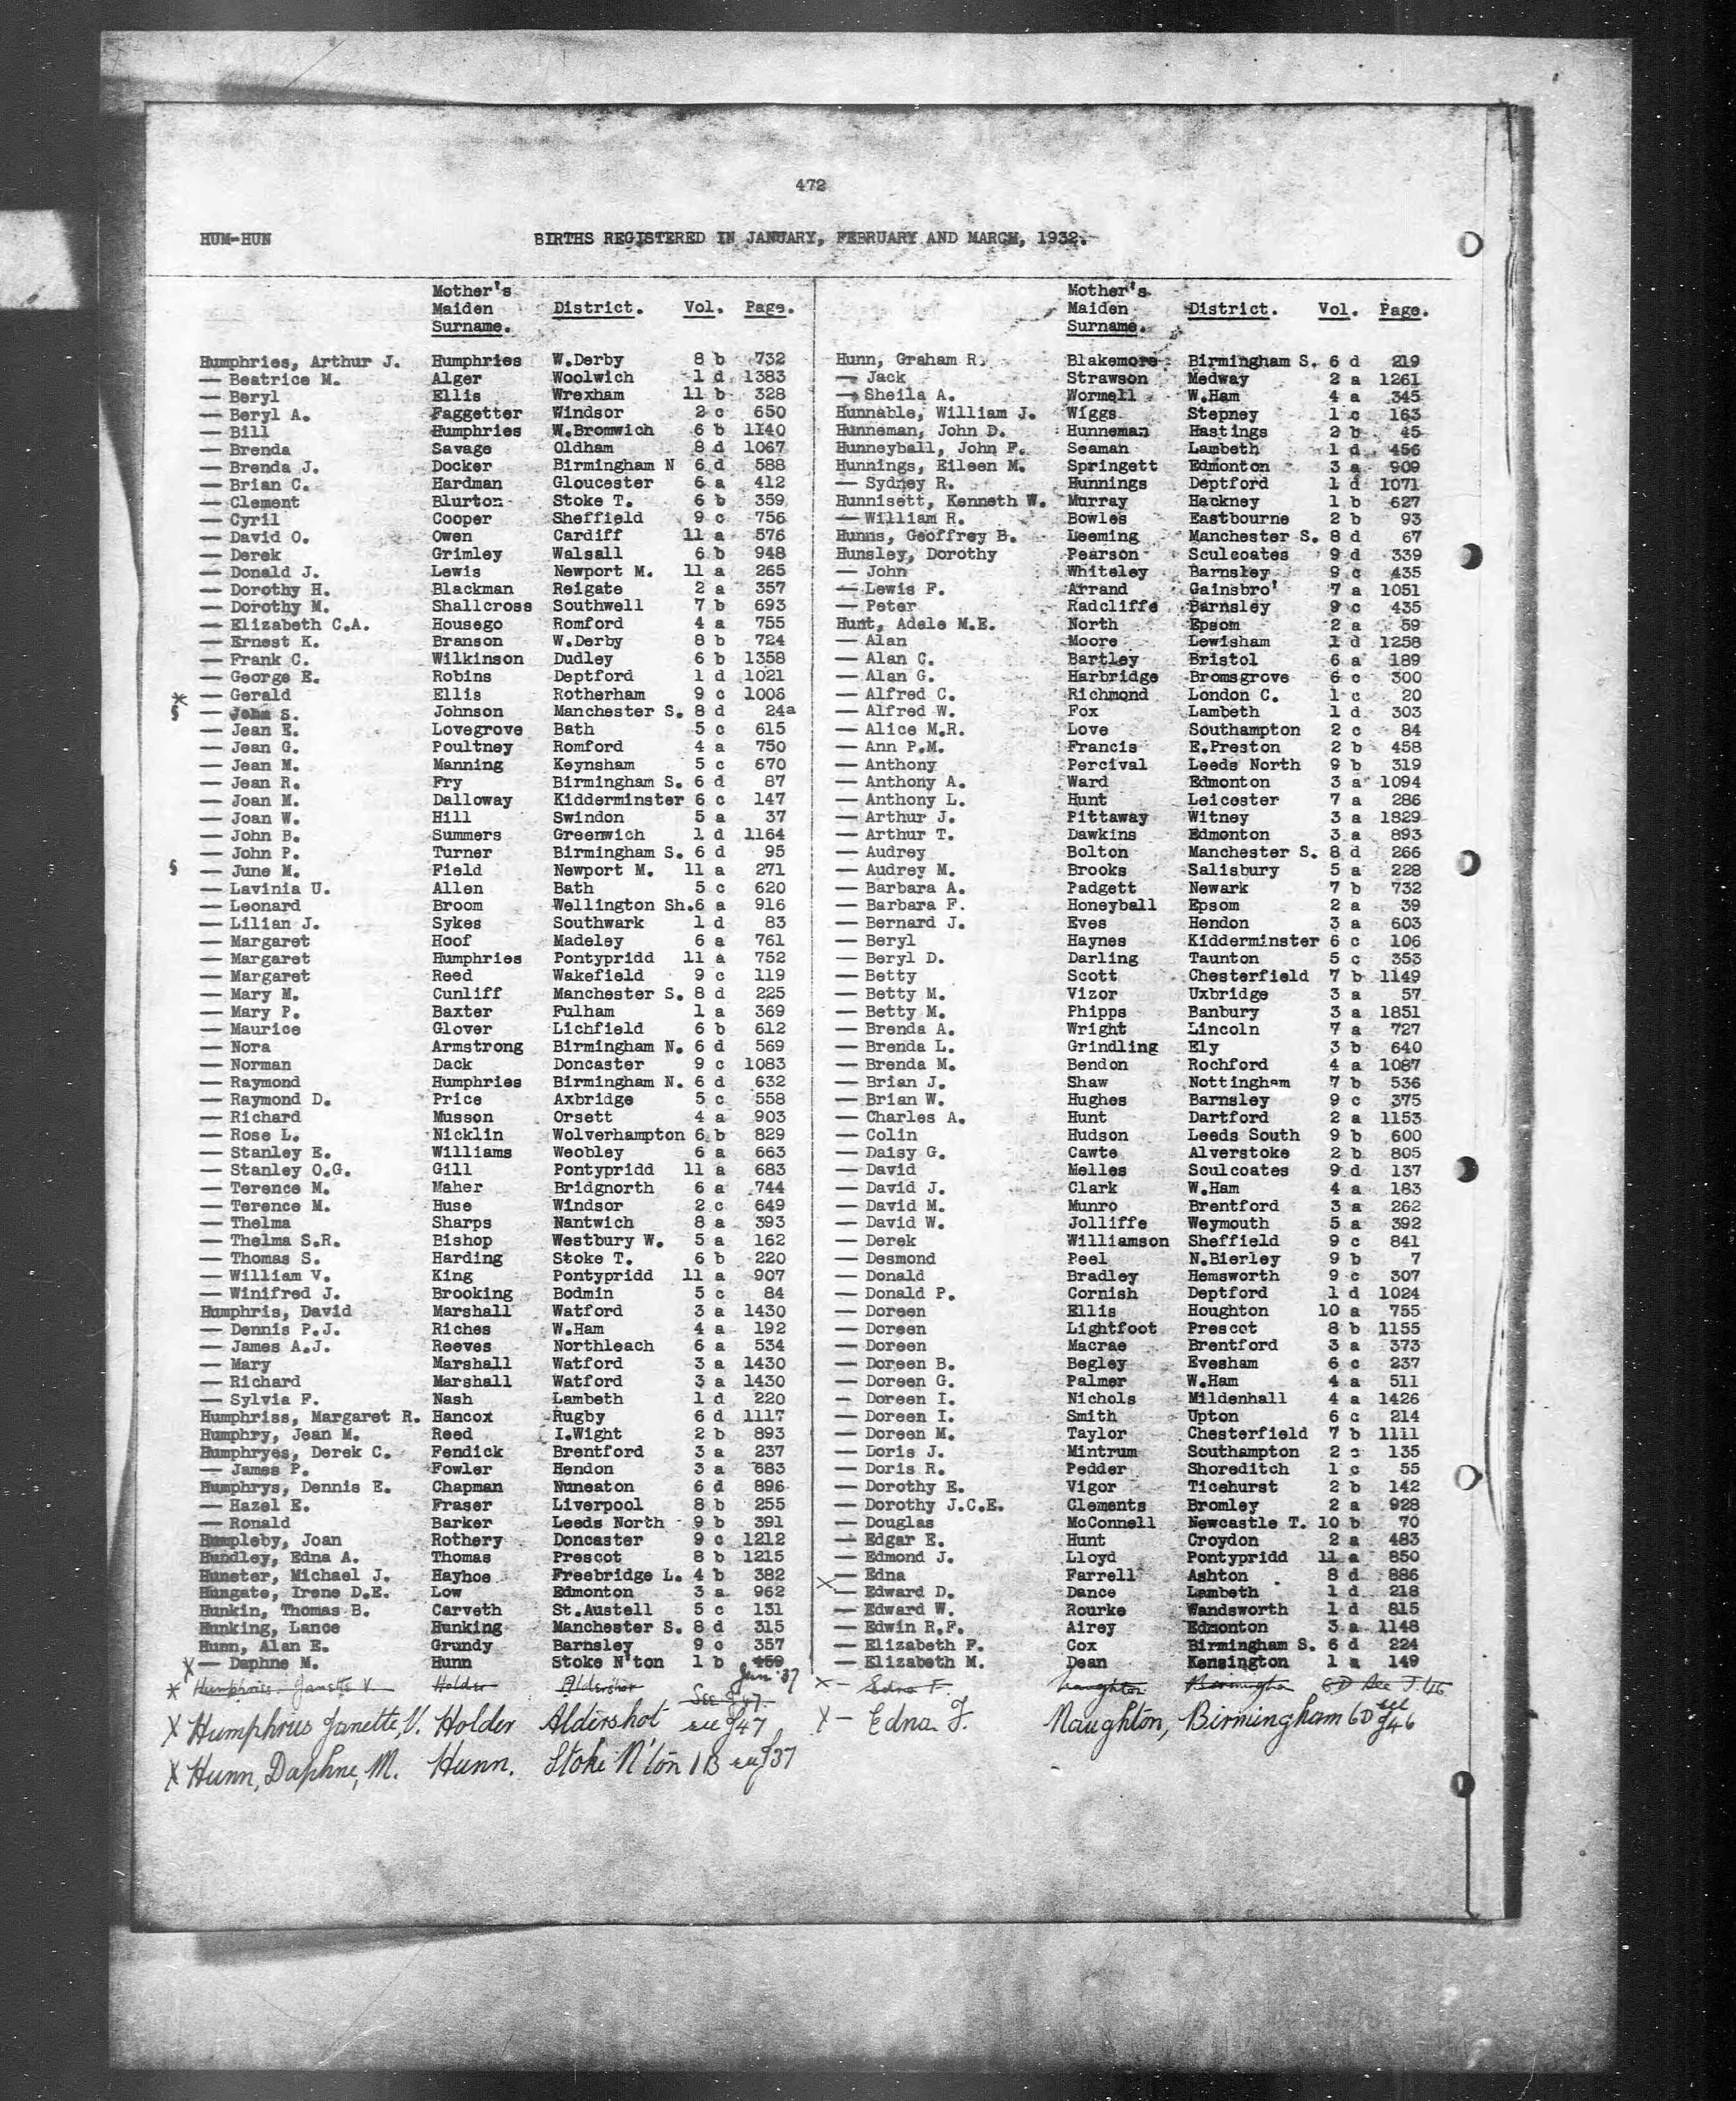 472
HUM-HUN
BIRTHS REGISTERED IN JANUARY, FEBRUARY AND MARCH, 1932.
Mother's
Maiden District. Vol. Page.
Surname.
Humphries, Arthur J. Humphries W.Derby 8 b 732
— Beatrice M. Alger Woolwich 1 d 1383
— Beryl Ellis Wrexham 11 b 328
— Beryl A. Faggetter Windsor 2 c 650
— Bill Humphries W.Bromwich 6 b 1140
— Brenda Savage Oldham 8 d 1067
— Brenda J. Docker Birmingham N 6 d 588
— Brian C. Hardman Gloucester 6 a 412
— Clement Blurton Stoke T. 6 b 359
— Cyril Cooper Sheffield 9 c 756
— David O. Owen Cardiff 11 a 576
— Derek Grimley Walsall 6 b 948
— Donald J. Lewis Newport M. 11 a 265
— Dorothy H. Blackman Reigate 2 a 357
— Dorothy M. Shallcross Southwell 7 b 693
— Elizabeth C.A. Housego Romford 4 a 755
— Ernest K. Branson W.Derby 8 b 724
— Frank C. Wilkinson Dudley 6 b 1358
— George E. Robins Deptford 1 d 1021
— Gerald Ellis Rotherham 9 c 1006
— John S. Johnson Manchester S. 8 d 24a
— Jean E. Lovegrove Bath 5 c 615
— Jean G. Poultney Romford 4 a 750
— Jean M. Manning Keynsham 5 c 670
— Jean R. Fry Birmingham S. 6 d 87
— Joan M. Dalloway Kidderminster 6 c 147
— Joan W. Hill Swindon 5 a 37
— John B. Summers Greenwich 1 d 1164
— John P. Turner Birmingham S. 6 d 95
— June M. Field Newport M. 11 a 271
— Lavinia U. Allen Bath 5 c 620
— Leonard Broom Wellington Sh. 6 a 916
— Lilian J. Sykes Southwark 1 d 83
— Margaret Hoof Madeley 6 a 761
— Margaret Humphries Pontypridd 11 a 752
— Margaret Reed Wakefield 9 c 119
— Mary M. Cunliff Manchester S. 8 d 225
— Mary P. Baxter Fulham 1 a 369
— Maurice Glover Lichfield 6 b 612
— Nora Armstrong Birmingham N. 6 d 569
— Norman Dack Doncaster 9 c 1083
— Raymond Humphries Birmingham N. 6 d 632
— Raymond D. Price Axbridge 5 c 558
— Richard Musson Orsett 4 a 903
— Rose L. Nicklin Wolverhampton 6 b 829
— Stanley E. Williams Weobley 6 a 663
— Stanley O.G. Gill Pontypridd 11 a 683
— Terence M. Maher Bridgnorth 6 a 744
— Terence M. Huse Windsor 2 c 649
— Thelma Sharps Nantwich 8 a 393
— Thelma S.R. Bishop Westbury W. 5 a 162
— Thomas S. Harding Stoke T. 6 b 220
— William V. King Pontypridd 11 a 907
— Winifred J. Brooking Bodmin 5 c 84
Humphris, David Marshall Watford 3 a 1430
— Dennis P.J. Riches W.Ham 4 a 192
— James A.J. Reeves Northleach 6 a 534
— Mary Marshall Watford 3 a 1430
— Richard Marshall Watford 3 a 1430
— Sylvia F. Nash Lambeth 1 d 220
Humphriss, Margaret R. Hancox Rugby 6 d 1117
Humphry, Jean M. Reed I.Wight 2 b 893
Humphryes, Derek C. Fendick Brentford 3 a 237
— James P. Fowler Hendon 3 a 683
Humphrys, Dennis E. Chapman Nuneaton 6 d 896
— Hazel E. Fraser Liverpool 8 b 255
— Ronald Barker Leeds North 9 b 391
Humpleby, Joan Rothery Doncaster 9 c 1212
Hundley, Edna A. Thomas Prescot 8 b 1215
Hunster, Michael J. Hayhoe Freebridge L. 4 b 382
Hungate, Irene D.E. Low Edmonton 3 a 962
Hunkin, Thomas B. Carveth St.Austell 5 c 131
Hunking, Lance Hunking Manchester S. 8 d 315
Hunn, Alan E. Grundy Barnsley 9 c 357
X — Daphne M. Hunn Stoke N'ton 1 b 459
Jun '37
Humphries Janette V. Holder Aldershot See J 47
X Humphries Janette, V. Holder Aldershot see J47
X Hunn, Daphne, M. Hunn. Stoke N'ton 1B see J37
Mother's
Maiden District. Vol. Page.
Surname.
Hunn, Graham R. Blakemore Birmingham S. 6 d 219
— Jack Strawson Medway 2 a 1261
— Sheila A. Wormell W.Ham 4 a 345
Hunnable, William J. Wiggs Stepney 1 c 163
Hunneman, John D. Hunneman Hastings 2 b 45
Hunneyball, John F. Seaman Lambeth 1 d 456
Hunnings, Eileen M. Springett Edmonton 3 a 909
— Sydney R. Hunnings Deptford 1 d 1071
Hunnisett, Kenneth W. Murray Hackney 1 b 627
— William R. Bowles Eastbourne 2 b 93
Hunns, Geoffrey B. Leeming Manchester S. 8 d 67
Hunsley, Dorothy Pearson Sculcoates 9 d 339
— John Whiteley Barnsley 9 c 435
— Lewis F. Arrand Gainsbro' 7 a 1051
— Peter Radcliffe Barnsley 9 c 435
Hunt, Adele M.E. North Epsom 2 a 59
— Alan Moore Lewisham 1 d 1258
— Alan C. Bartley Bristol 6 a 189
— Alan G. Harbridge Bromsgrove 6 c 300
— Alfred C. Richmond London C. 1 c 20
— Alfred W. Fox Lambeth 1 d 303
— Alice M.R. Love Southampton 2 c 84
— Ann P.M. Francis E.Preston 2 b 458
— Anthony Percival Leeds North 9 b 319
— Anthony A. Ward Edmonton 3 a 1094
— Anthony L. Hunt Leicester 7 a 286
— Arthur J. Pittaway Witney 3 a 1829
— Arthur T. Dawkins Edmonton 3 a 893
— Audrey Bolton Manchester S. 8 d 266
— Audrey M. Brooks Salisbury 5 a 228
— Barbara A. Padgett Newark 7 b 732
— Barbara F. Honeyball Epsom 2 a 39
— Bernard J. Eves Hendon 3 a 603
— Beryl Haynes Kidderminster 6 c 106
— Beryl D. Darling Taunton 5 c 353
— Betty Scott Chesterfield 7 b 1149
— Betty M. Vizor Uxbridge 3 a 57
— Betty M. Phipps Banbury 3 a 1851
— Brenda A. Wright Lincoln 7 a 727
— Brenda L. Grindling Ely 3 b 640
— Brenda M. Bendon Rochford 4 a 1087
— Brian J. Shaw Nottingham 7 b 536
— Brian W. Hughes Barnsley 9 c 375
— Charles A. Hunt Dartford 2 a 1153
— Colin Hudson Leeds South 9 b 600
— Daisy G. Cawte Alverstoke 2 b 805
— David Melles Sculcoates 9 d 137
— David J. Clark W.Ham 4 a 183
— David M. Munro Brentford 3 a 262
— David W. Jolliffe Weymouth 5 a 392
— Derek Williamson Sheffield 9 c 841
— Desmond Peel N.Bierley 9 b 7
— Donald Bradley Hemsworth 9 c 307
— Donald P. Cornish Deptford 1 d 1024
— Doreen Ellis Houghton 10 a 755
— Doreen Lightfoot Prescot 8 b 1155
— Doreen Macrae Brentford 3 a 373
— Doreen B. Begley Evesham 6 c 237
— Doreen G. Palmer W.Ham 4 a 511
— Doreen I. Nichols Mildenhall 4 a 1426
— Doreen I. Smith Upton 6 c 214
— Doreen M. Taylor Chesterfield 7 b 1111
— Doris J. Mintrum Southampton 2 c 135
— Doris R. Pedder Shoreditch 1 c 55
— Dorothy E. Vigor Ticehurst 2 b 142
— Dorothy J.C.E. Clements Bromley 2 a 928
— Douglas McConnell Newcastle T. 10 b 70
— Edgar E. Hunt Croydon 2 a 483
— Edmond J. Lloyd Pontypridd 11 a 850
— Edna Farrell Ashton 8 d 886
— Edward D. Dance Lambeth 1 d 218
— Edward W. Rourke Wandsworth 1 d 815
— Edwin R.F. Airey Edmonton 3 a 1148
— Elizabeth F. Cox Birmingham S. 6 d 224
— Elizabeth M. Dean Kensington 1 a 149
X — Edna F. Naughton Birmingham 6D See J 46
X — Edna F. Naughton, Birmingham 6D see J46